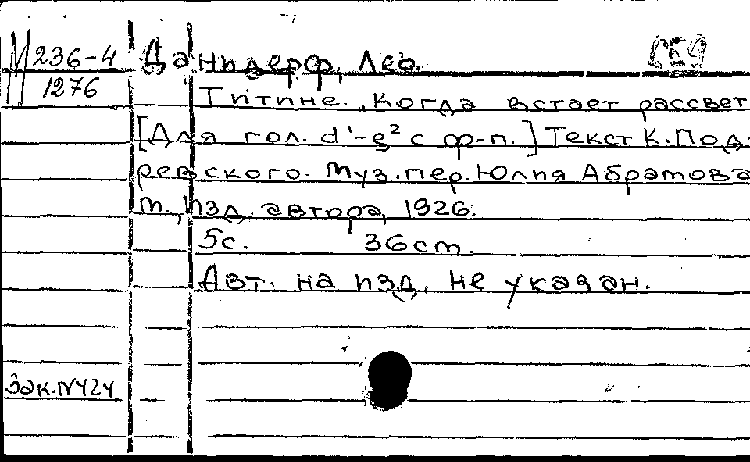 М 236-4
1276
Данидерф, Лео.
Титине. „Когда встает рассвет
[Для гол. d¹-g² с ф-п.] Текст К. Под-
ревского. Муз. пер. Юлия Абрамова
М., Изд. автора, 1926.
5с. 36cm.
Авт. на изд. не указан.
Зак. N424